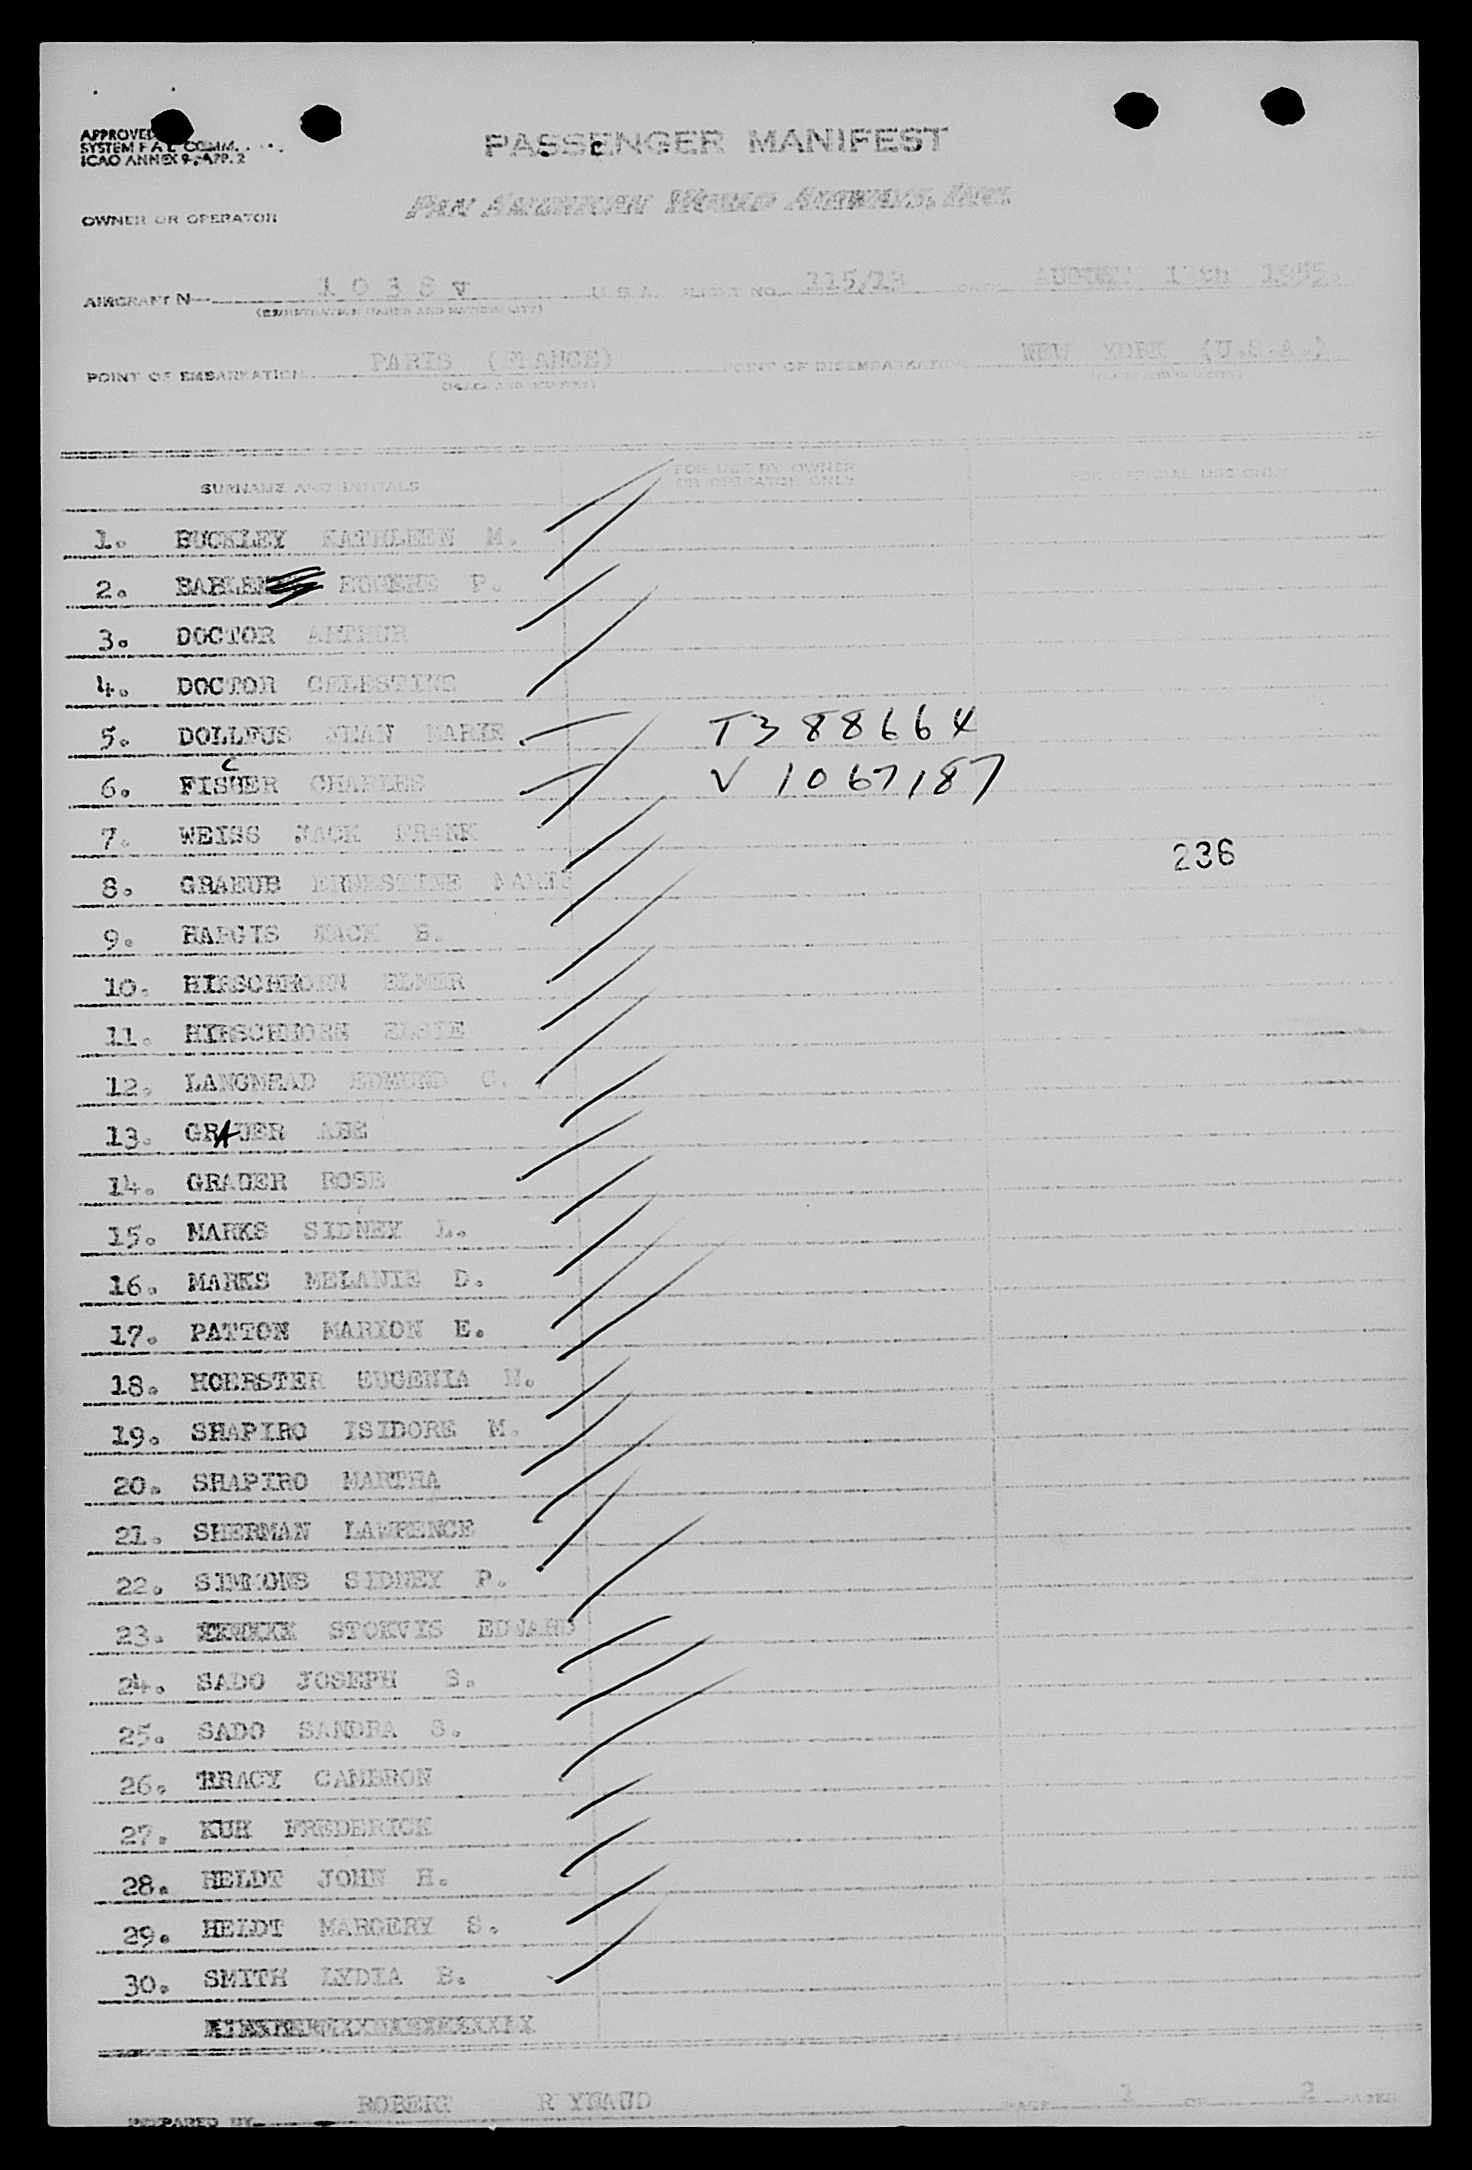 APPROVED
SYSTEM F A L COMM.
ICAO ANNEX 9, APP. 2
PASSENGER MANIFEST
OWNER OR OPERATOR PAN AMERICAN WORLD AIRWAYS, INC.
AIRCRAFT N 1 0 3 8 V U.S.A. FLIGHT NO. 115/13 DATE AUGUST 1955.
(REGISTRATION MARKS AND NATIONALITY)
POINT OF EMBARKATION PARIS (FRANCE) POINT OF DISEMBARKATION NEW YORK (U.S.A.)
(PLACE AND COUNTRY) (PLACE AND COUNTRY)
SURNAME AND INITIALS FOR USE BY OWNER OR OPERATOR ONLY FOR OFFICIAL USE ONLY
1. BUCKLEY KATHLEEN M.
2. EUGENE P.
3. DOCTOR ARTHUR
4. DOCTOR CELESTINE
5. DOLLFUS JEAN MARIE T388664
6. FISCHER CHARLES V 1067187
7. WEISS JACK FRANK
236
8. GRAEUB ERNESTINE MARIE
9. HARGIS JACK B.
10. HIRSCHHORN ELMER
11. HIRSCHHORN ELSIE
12. LANGMEAD EDMUND C.
13. GRAUER ABE
14. GRAUER ROSE
15. MARKS SIDNEY L.
16. MARKS MELANIE D.
17. PATTON MARION E.
18. HOERSTER EUGENIA N.
19. SHAPIRO ISIDORE M.
20. SHAPIRO MARTHA
21. SHERMAN LAWRENCE
22. SIMMONS SIDNEY P.
23. STOKVIS EDWARD
24. SADO JOSEPH S.
25. SADO SANDRA S.
26. TRACY CAMERON
27. KUH FREDERICK
28. HELDT JOHN H.
29. HELDT MARGERY S.
30. SMITH LYDIA B.
PREPARED BY ROBERT R YNAUD PAGE 1 OF 2 PAGES